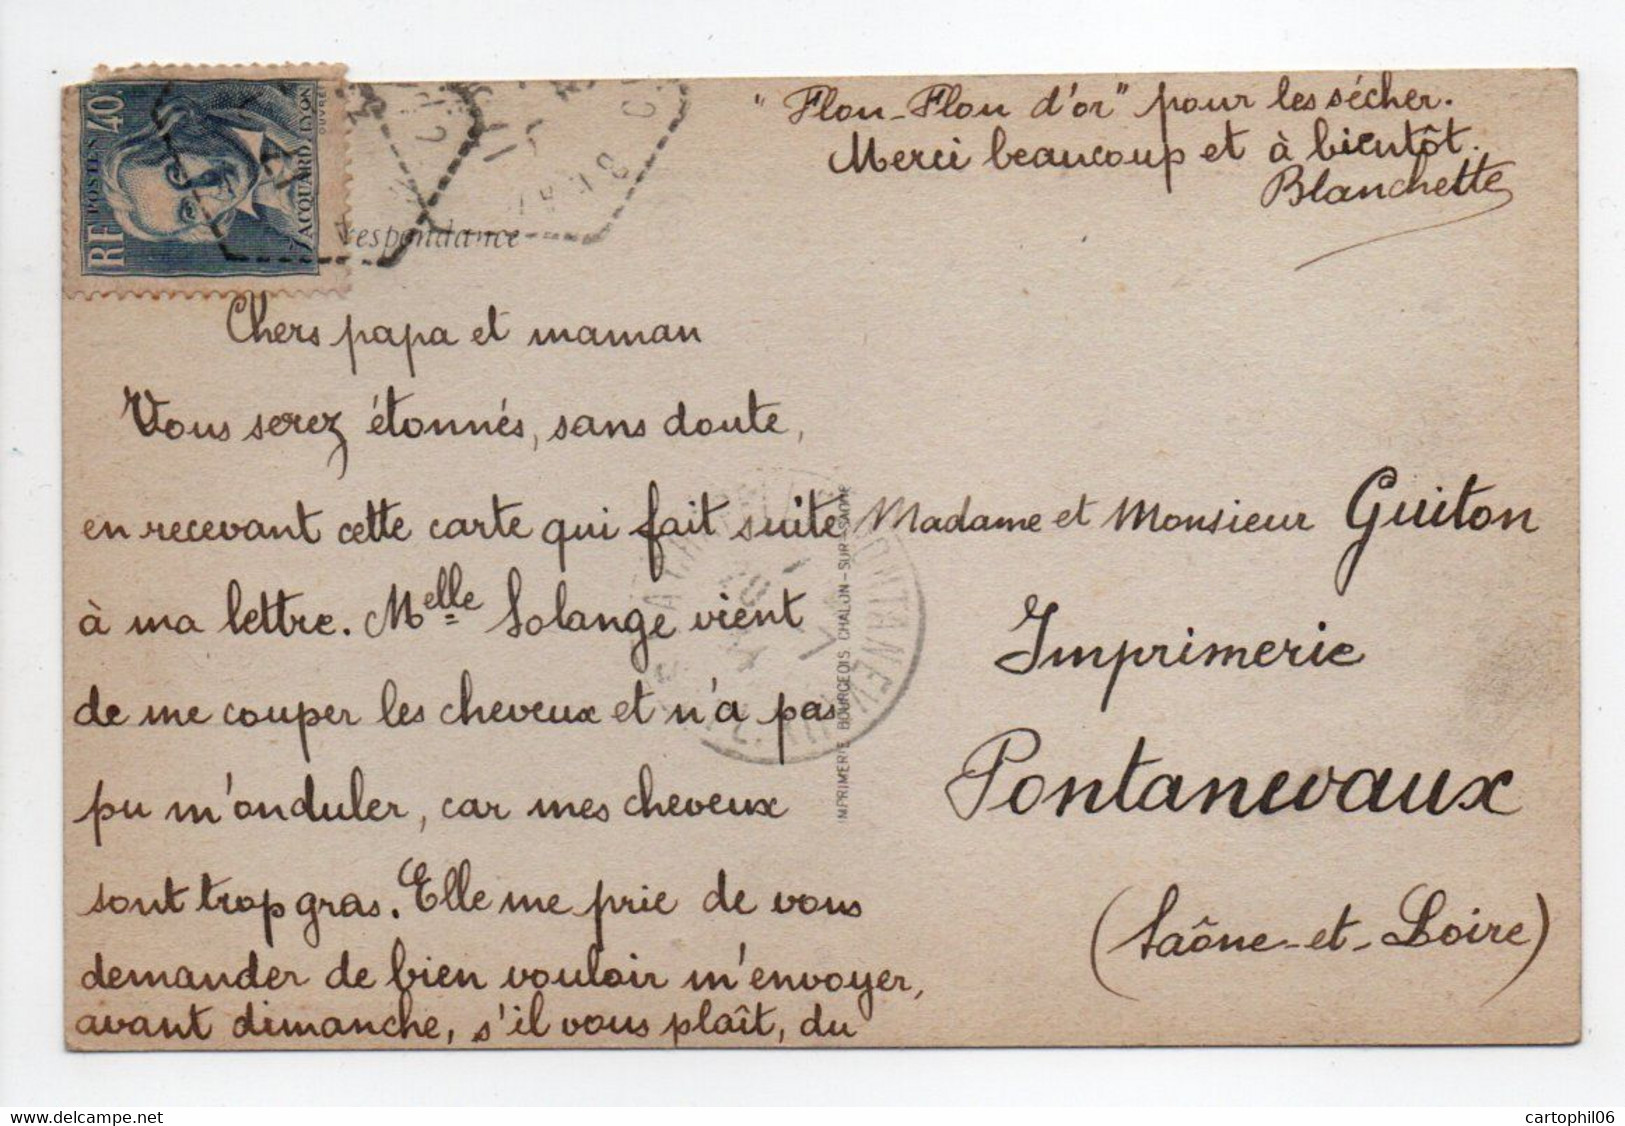 RF POSTES 40c
JACQUARD. LYON
respondance
Chers papa et maman
Vous serez étonnés, sans doute,
en recevant cette carte qui fait suite
à ma lettre. Melle Solange vient
de me couper les cheveux et n'a pas
pu m'onduler, car mes cheveux
sont trop gras. Elle me prie de vous
demander de bien vouloir m'envoyer,
avant dimanche, s'il vous plaît, du
"Flou-Flou d'or" pour les sécher.
Merci beaucoup et à bientôt.
Blanchette
IMPRIMERIE BOURGEOIS CHALON-SUR-SAONE
PONTANEVAUX
Madame et Monsieur Guiton
Imprimerie
Pontanevaux
(Saône-et-Loire)
cartophil06